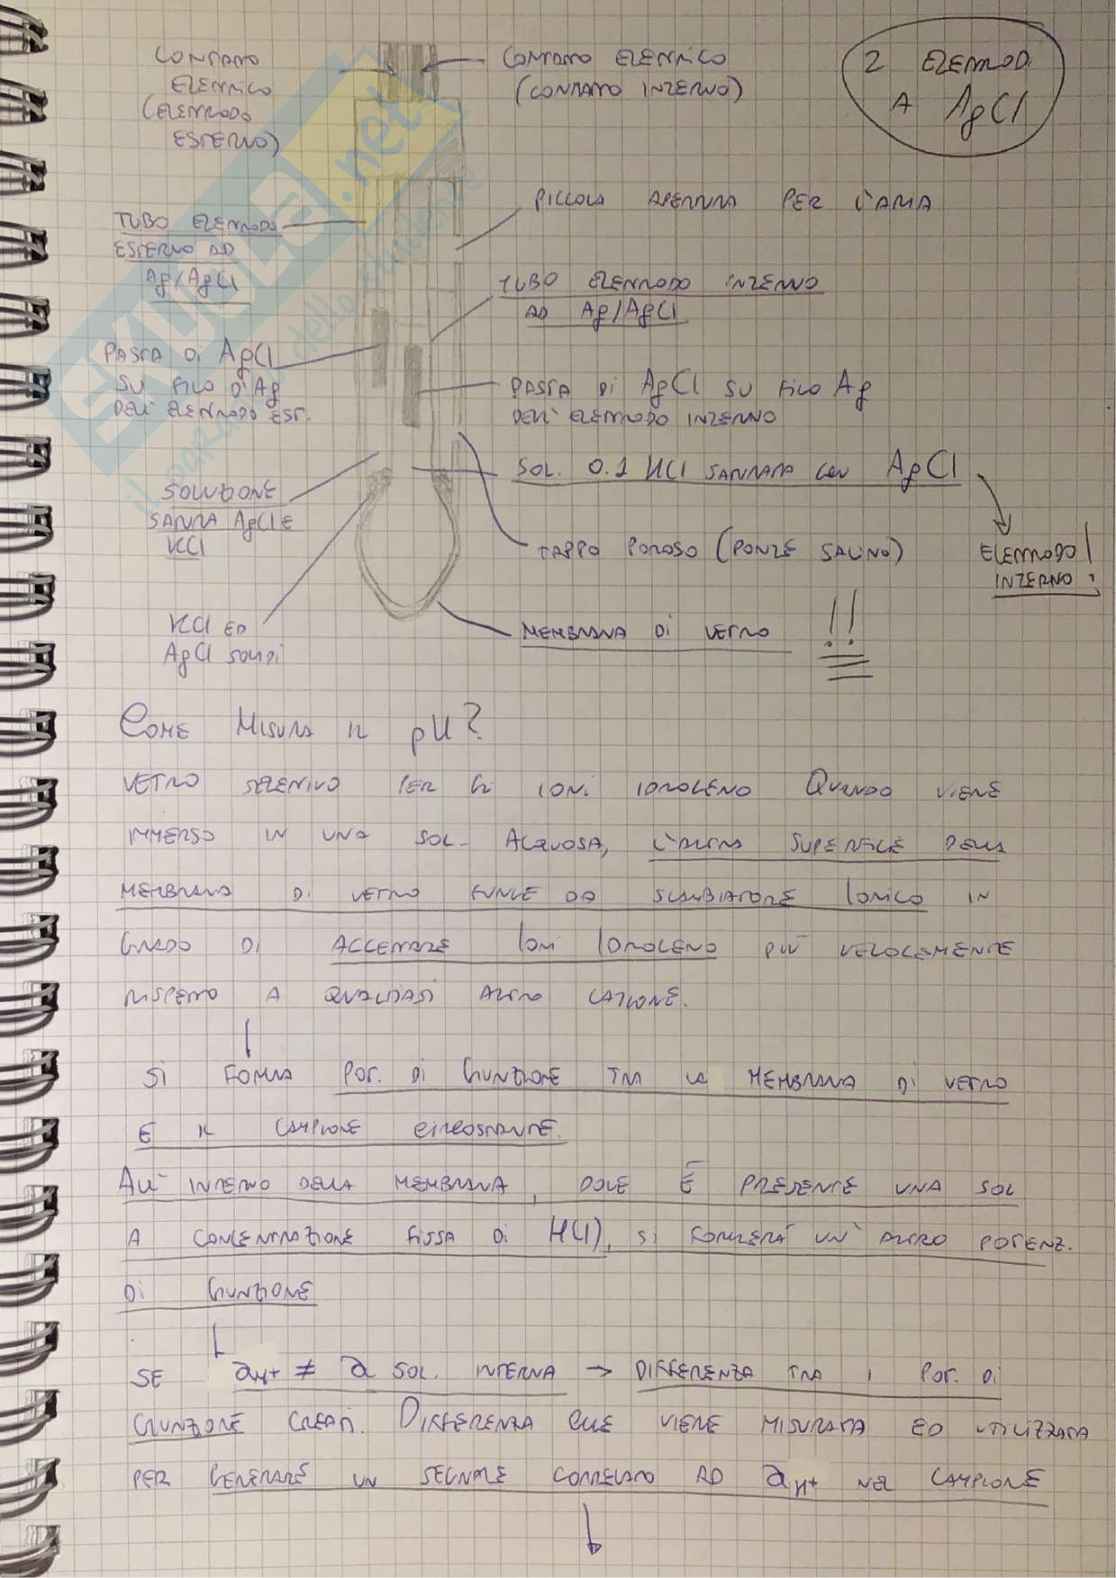 CONTATTO
ELETTRICO
(ELETTRODO
ESTERNO)
CONTATTO ELETTRICO
(CONTATTO INTERNO)
2 ELETTRODI
A AgCl
PICCOLA APERTURA PER L'ARIA
TUBO ELETTRODO
ESTERNO AD
Ag/AgCl
TUBO ELETTRODO INTERNO
AD Ag/AgCl
PASTA DI AgCl
SU FILO D'Ag
DELL'ELETTRODO EST.
PASTA DI AgCl SU FILO Ag
DELL'ELETTRODO INTERNO
SOL. 0.1 HCl SATURATA CON AgCl
SOLUZIONE
SATURA AgCl E
KCl
TAPPO POROSO (PONTE SALINO)
ELETTRODO
INTERNO!
KCl ED
AgCl SOLIDI
MEMBRANA DI VETRO !!
COME MISURA IL pH?
VETRO SELETTIVO PER GLI IONI IDROGENO QUANDO VIENE
IMMERSO IN UNA SOL. ACQUOSA, L'ALTRA SUPERFICE DELLA
MEMBRANA DI VETRO FUNGE DA SCAMBIATORE IONICO IN
GRADO DI ACCETTARE IONI IDROGENO PIÙ VELOCEMENTE
RISPETTO A QUALSIASI ALTRO CATIONE.
SI FORMA POT. DI GIUNZIONE TRA LA MEMBRANA DI VETRO
E IL CAMPIONE CIRCOSTANTE.
ALL'INTERNO DELLA MEMBRANA, DOVE È PRESENTE UNA SOL
A CONCENTRAZIONE FISSA DI HCl), SI FORMERÀ UN ALTRO POTENZ.
DI GIUNZIONE
SE aH+ ≠ a SOL. INTERNA → DIFFERENZA TRA I POT. DI
GIUNZIONE CREATI. DIFFERENZA CHE VIENE MISURATA ED UTILIZZATA
PER GENERARE UN SEGNALE CORRELATO AD aH+ NEL CAMPIONE
SKUOLA.net